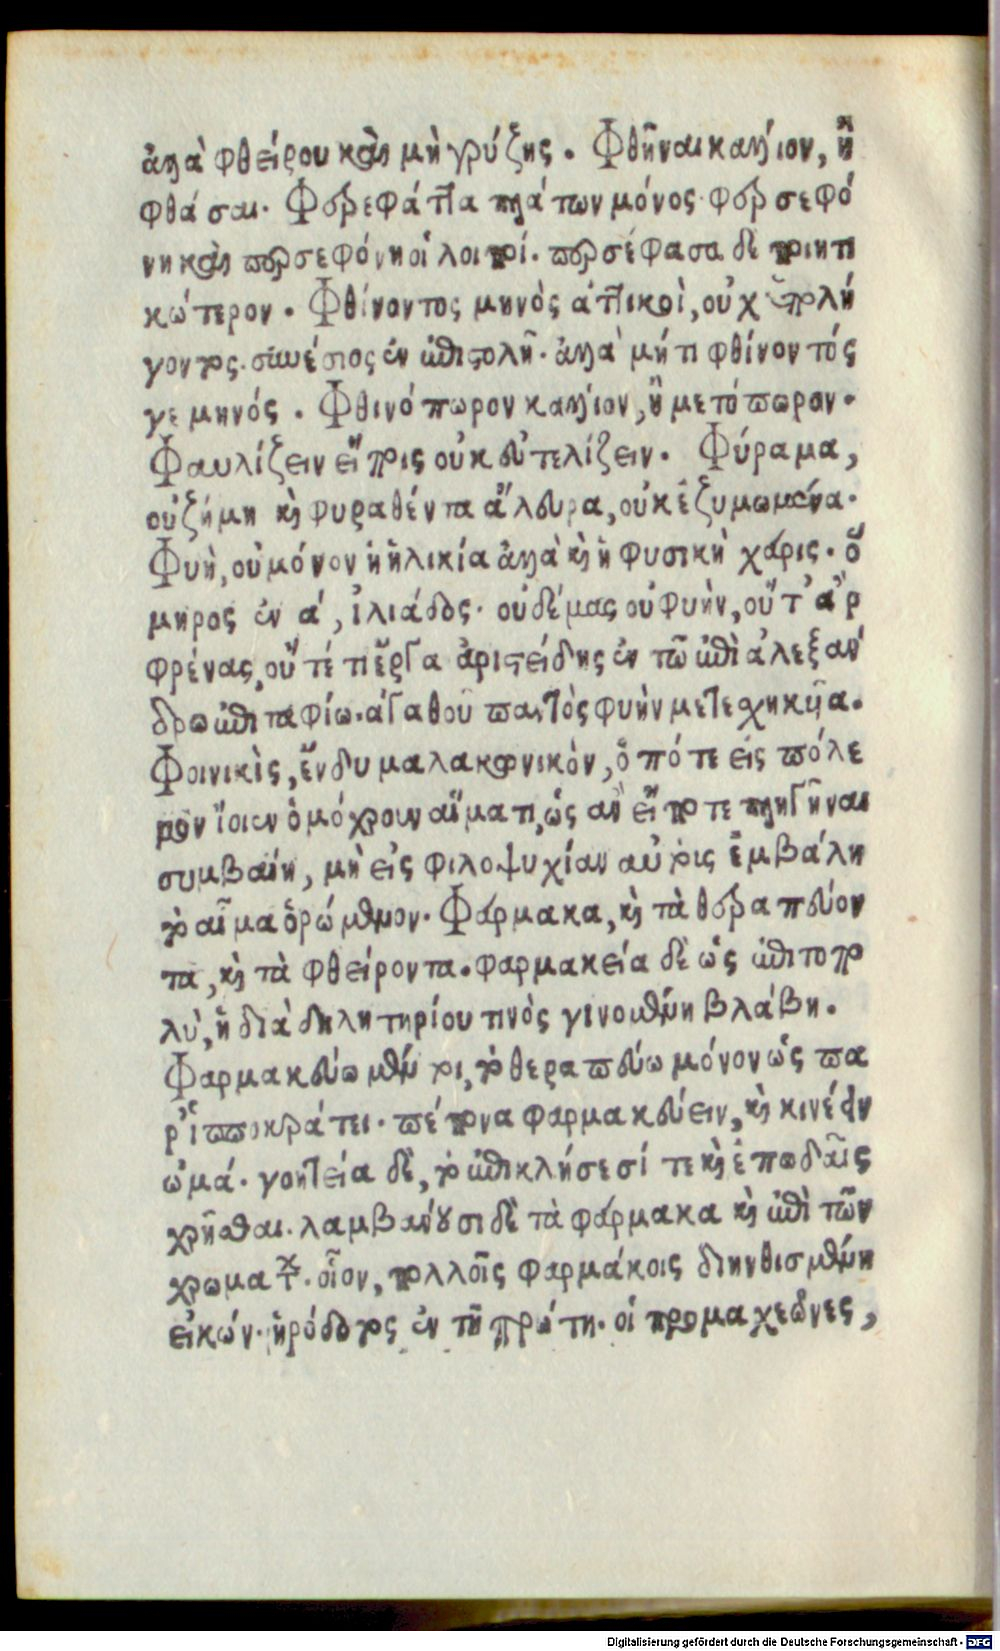 ἀλλὰ φθείρου καὶ μὴ γρύζῃς. Φθῆναι κάλλιον, ἢ
φθάσαι. Φερεφάττα πλάτων μόνος. φερσεφό
νη καὶ περσεφόνη οἱ λοιποί. περσέφασα δὲ ποιητι
κώτερον. Φθίνοντος μηνὸς ἀττικοὶ, οὐχ ὑπολή
γοντος. συνέσιος ἐν ἐπιστολῆ. ἀλλὰ μήτι φθίνοντός
γε μηνός. Φθινόπωρον κάλλιον, ἢ μετόπωρον.
Φαυλίζειν εἴποις οὐκ εὐτελίζειν. Φύραμα,
οὐ ζήμη καὶ φυραθέντα ἄλευρα, οὐκ ἐζυμωμένα.
Φυὴ, οὐ μόνον ἡ ἡλικία ἀλλὰ καὶ ἡ φυσικὴ χάρις. ὅ
μηρος ἐν α', ἰλιάδος. οὐ δέμας οὐ φυὴν, οὔτ' ἂρ
φρένας, οὔτέ τι ἔργα ἀριστείδης ἐν τῶ ἐπὶ ἀλεξάν
δρω ἐπιταφίω. ἀγαθοῦ παντὸς φυὴν μετεχηκυῖα.
Φοινικὶς, ἔνδυμα λακωνικὸν, ὁπότε εἰς πόλε
μον ἴοιεν ὁμόχρουν αἵματι, ὡς ἂν εἴ ποτε πληγῆναι
συμβαίη, μὴ εἰς φιλοψυχίαν αὐτοῖς ἐμβάλη
τὸ αἷμα ὁρώμενον. Φάρμακα, καὶ τὰ θεραπεύον
τα, καὶ τὰ φθείροντα. φαρμακεία δὲ ὡς ἐπιτοπο
λὺ, ἡ διὰ δηλητηρίου τινὸς γινομένη βλάβη.
Φαρμακεύω μέν τοι, τὸ θεραπεύω μόνον ὡς πα
ρ' ἱπποκράτει. πέπονα φαρμακεύειν, καὶ κινέειν
ὠμά. γοητεία δὲ, τὸ ἐπικλήσεσί τε καὶ ἐπωδαῖς
χρῆσθαι. λαμβάνουσι δὲ τὰ φάρμακα καὶ ἐπὶ τῶν
χρωμάτων. οἷον, πολλοῖς φαρμάκοις διηνθισμένη
εἰκών. ἡρόδοτος ἐν τῆ πρώτη. οἱ προμαχεῶνες,
Digitalisierung gefördert durch die Deutsche Forschungsgemeinschaft - DFG